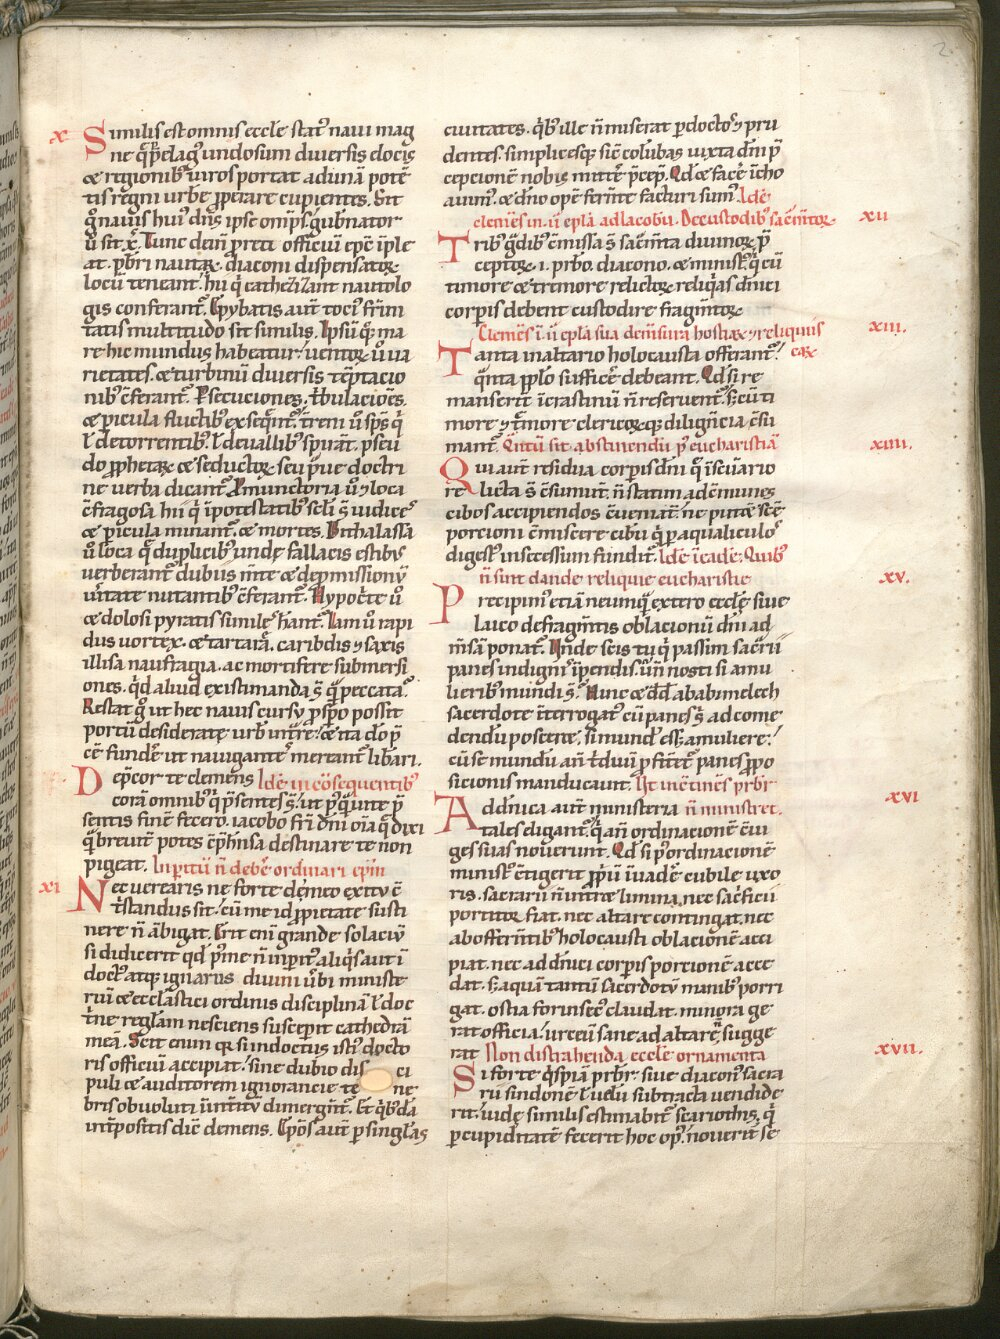 2
x Similis est omnis eccl̄e stat᷒ naui mag
ne q̄ ꝑ pelag᷒ undosum diuersis locis
⁊ regionib᷒ uiros portat adunā potē
tis regni urbē ꝓperare cupientes. Sit
g̊ nauis hui᷒ dn̄s ip̄se omīps. gub̄nator
ū sit xp̄c. Tunc dein p̄rete officiū ep̄c īple
at. p̄bri nautaꝝ. diaconi dispensatoꝝ
locū teneant. hii q̄ cathezizant nautolo
gis conferant᷒. Ep̄ybatis aut̄ toci᷒ fr̄m
tatis multitudo sit similis. Ipsū q̄ꝫ ma
re hic mundus habeatur. uentoꝝ ū ua
rietates. ⁊ turbinū diuersis tēptacio
nib᷒ c̄ferant᷒. Persecuciones. t̄bulacōes.
⁊ picula fluctib᷒ exseq̄nt᷒. t̄rem ū sps̄ q̄
ł de torrentib᷒. ł de uallib᷒ spirāt. pseu
do ꝓphetaꝝ ⁊ seductoꝝ seu praue doctri
ne uerba dicant᷒. Pmunctoria ū ⁊ loca
c̄fragosa. hii q̄ ī potestatib᷒ sc̄li s̄ iudices
⁊ picula minant᷒. ⁊ mortes. Bithalassa
ū loca q̄ duplicib᷒ undę fallacis estib᷒
uerberant᷒. dubiis m̄te ⁊ de ꝓmissionū
ūitate nutantib᷒ c̄ferant᷒. Hypoc̄te ū
⁊ dolosi pyratis similes hant᷒. Iam ū rapi
dus uortex. ⁊ tartarā. caribdis ⁊ saxis
illisa naufragia. ac mortifere submersi
ones. q̄d aliud existimanda s̄ q̄ peccata.
Restat g̊ ut hec nauis cursu ꝓspo possit
portū desideratę urb᷒ int̄re. ⁊ ita d̄o p̄
cē fundē. ut nauigantes mereant᷒ lib̄ari.
D ep̄cor te clemens Idē in cōsequentib᷒
corā omnib᷒ q̄ p̄sentes s̄. ut p᷒q̄ uite p̄
sentis finē fecero. iacobo fr̄i dn̄i oīa q̄ dixi
q̄ breuit̄ potes cp̄hn̄sa destinare te non
pigeat. Inperitū n̄ debē ordinari ep̄m
xi Nec uerearis ne forte de meo exitu c̄
t̄standus sit. cū me id ꝓpietate susti
nere n̄ ābigat. Erit eni grande solaciū
si didicerit qd̄ p᷒ me n̄ inperit᷒ aliq̄s aut ī
doct᷒ atqꝫ ignarus diuini ūbi ministe
riū ⁊ eccl̄astici ordinis disciplinā ł doc
t̄ne regl̄am nesciens suscepit cathedrā
meā. Scit enim q̄ si indoctus istis docto
ris officiū accipiat. sine dubio dis ci
puli ⁊ auditorem ignorancie te ne
bris obuoluti ī int̄itū dimergn̄t᷒. Et q̄b᷒dā
int̄positis dic̄ clemens. Ep̄os aut̄ ꝑ singl̄as
ciuitates. q̄b᷒ ille n̄ miserat ꝑ doctoꝝ pru
dentes. simplicesqꝫ sic̄ colūbas iuxta dn̄i p̄
cepcionē nobis mitt̄e p̄cep̄. Qd̄ ⁊ facē īcho
auim᷒. ⁊ dn̄o opē ferente facturi sum᷒. Idē
clemēs in .ii. epl̄a ad iacobū. De custodib᷒ sac̄mtoꝝ xii
Trib᷒ g̊dib᷒ c̄missa s̄ sac̄mta diuinoꝝ p̄
ceptoꝝ .i. prb̄o. diacono. ⁊ minist᷒. q̄ cū
timore ⁊ tremore relictoꝝ reliq̄as dn̄ici
corpis debent custodire fragm̄toꝝ
Clemēs ī .ii. epl̄a sua de mēsura hostiaꝝ ⁊ reliquiis xiii.
Tanta in altario holocausta offerant᷒. eaꝝ
q̄nta pp̄lo sufficē debeant. Qd̄ si re
manserit ī crastinū n̄ reserueant᷒. s̄ cū ti
more ⁊ t̄more clericoꝝ q̄ dilign̄cia c̄su
mant᷒. Q̄ntū sit abstinendū p᷒ eucharistiā xiiii.
Qui aut̄ residua corporis dn̄i q̄ ī sc̄uario
relicta s̄ c̄sumūt. n̄ statim ad c̄munes
cibos accipiendos c̄ueniat. ne putēt sc̄e
porcioni c̄miscere cibū. q̄ ꝑ aqualiculos
digest᷒ in secessum fundit᷒. Idē ī eadē. Quib᷒
n̄ sint dande reliquie eucharistie xv.
Precipim᷒ etiā ne unq̄ extero eccl̄ę siue
laico de fragm̄tis oblacionū dn̄i ad
m̄sā ponat᷒. Unde scis tu q̄ passim sac̄rū
panes indigni īpendis. ūn̄ nosti si amu
lierib᷒ mundi s̄. Hinc ⁊ dd̄ ab abimelech
sacerdote īterrogat᷒ cū panes s̄ ad come
dendū posceret. si mund᷒ esset a muliere.
cū se mundū an̄ t̄duū ꝓfitēt᷒ panes ꝓpo
sicionis manducauit. Ust incōtines prb̄r
xvi
Ad dn̄ica aut̄ ministeria n̄ ministret.
tales eligant᷒. q̄ an̄ ordinacionē cōiu
ges suas nouerunt. Qd̄ si p᷒ ordinacionē
minist᷒ c̄tigerit ꝓp̄ū īuadē cubile uxo
ris. sacrarii n̄ intret limina. nec sac̄ficii
portitor fiat. nec altare contingat. nec
ab offerentib᷒ holocausti oblacionē acci
piat. nec ad dn̄ici corpis porcionē acce
dat. s̄ aquā tantū sacerdotū manib᷒ porri
gat. ostia forinsec᷒ claudat. minora ge
rat officia. urceū sane ad altare sugge
rat. Non distrahenda eccl̄ie ornamenta xvii.
Si forte q̄spiā prb̄r siue diacon᷒ sacra
rii sindonē ł uelū subtracta uendide
rit. iudę similis estimabit᷒ scariothis. q̄
ꝑ cupiditatē fecerit hoc op᷒. nouerit se